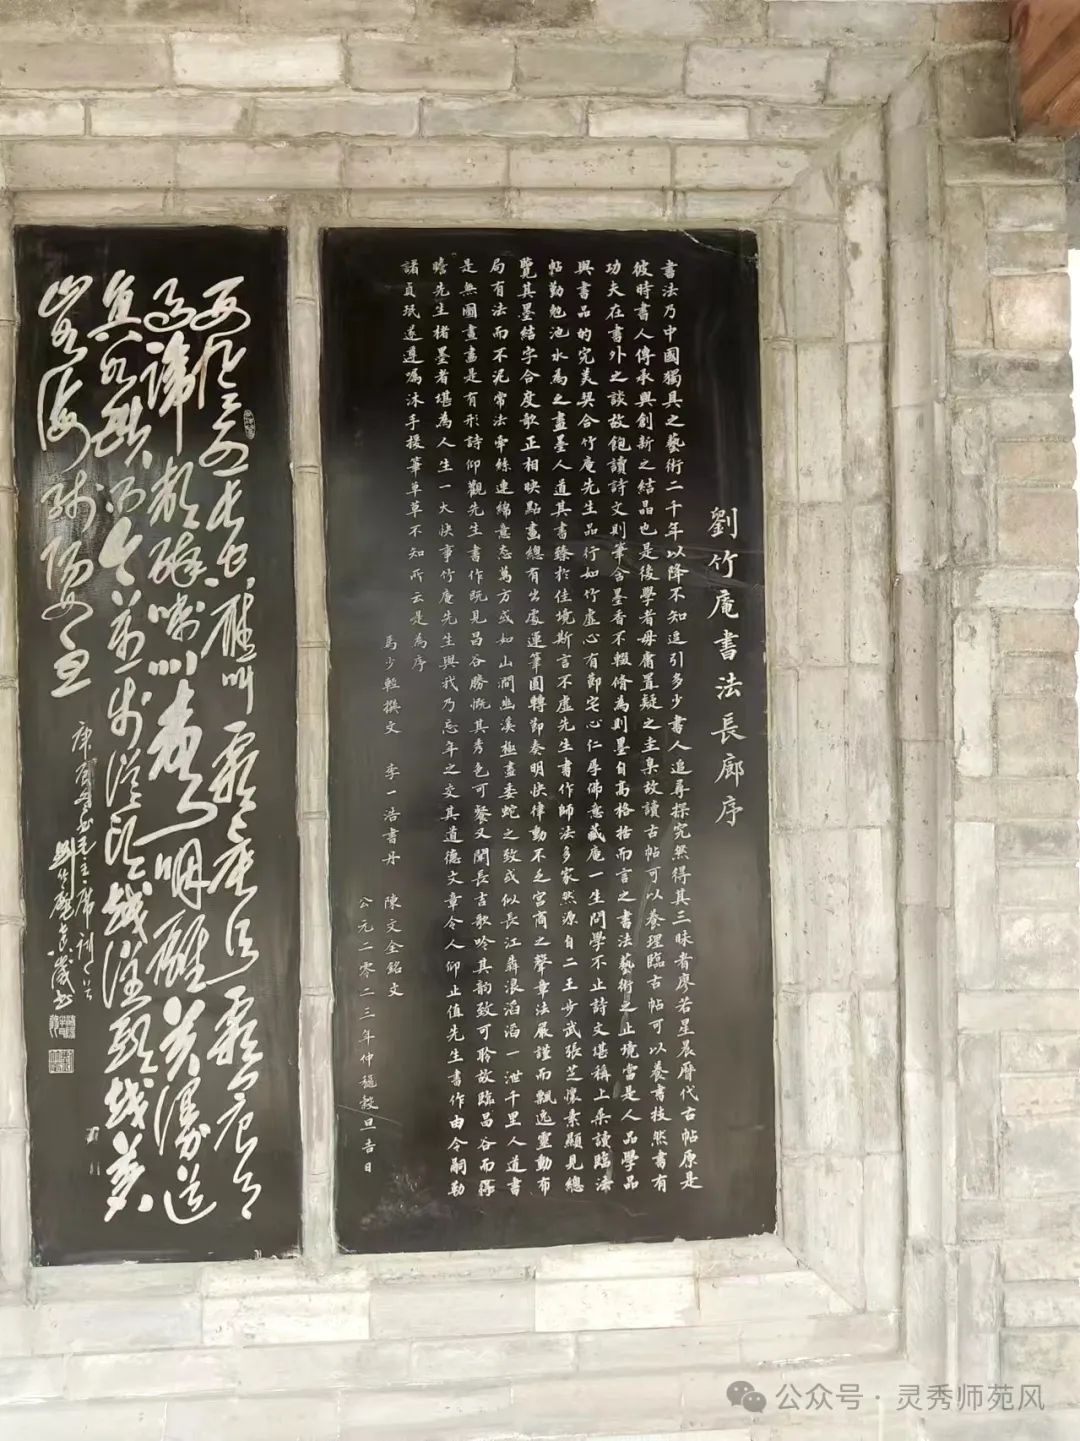 劉竹庵書法長廊序
書法乃中國獨具之藝術二千年以降不知造引多少書人追尋探究然得其三昧者廖若星晨曆代古帖原是
彼時書人傳承與創新之結晶也是後學者毋庸置疑之圭臬故讀古帖可以養理臨古帖可以養書技然書有
功夫在書外之談故飽讀詩文則筆含墨香不輟脩為則墨自高格捨而言之書法藝術之止境當是人品學品
與書品的完美契合竹庵先生品行如竹虛心有節宅心仁厚佛意藏庵一生問學不止詩文堪稱上乘讀臨法
帖勤勉池水為之盡墨人道其書臻於佳境斯言不虛先生書作師法多家然源自二王步武張芝懷素顯見總
覽其墨結字合度欹正相映點畫總有出處運筆圓轉節奏明快律動不乏宮商之聲章法嚴謹而飄逸靈動布
局有法而不泥常法牽絲連綿意态萬方或如山澗幽溪極盡委蛇之致或似長江犇浪滔滔一泄千里人道書
是無圖畫畫是有形詩仰觀先生書作既見昌谷勝慨其秀色可餐又聞長吉歌吟其韵致可聆故臨昌谷而得
瞻先生楮墨者堪為人生一大快事竹庵先生與我乃忘年之交其道德文章令人仰止值先生書作由令嗣勒
諸貞珉遂遵囑沐手操筆草草不知所云是為序
馬少輊撰文 李一浩書丹 陳文全銘文
公元二零二三年仲穐穀旦吉日
西風烈長空雁叫霜晨月霜晨月
馬蹄聲碎喇叭聲咽雄關漫道
真如鐵而今邁步從頭越從頭越蒼
山如海殘陽如血
庚寅年書毛主席詞一首
劉竹庵
公众号·灵秀师苑风